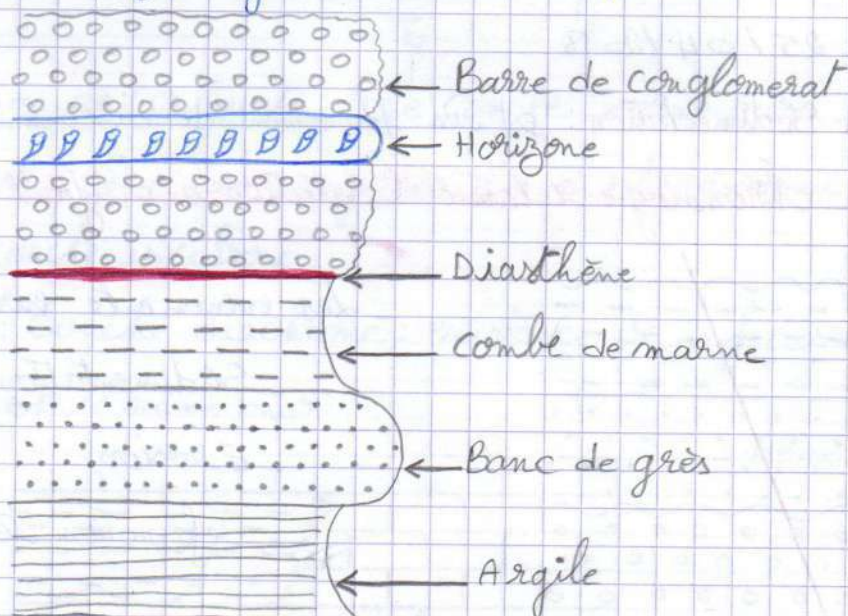 Barre de conglomerat
Horizone
Diasthène
Combe de marne
Banc de grès
Argile